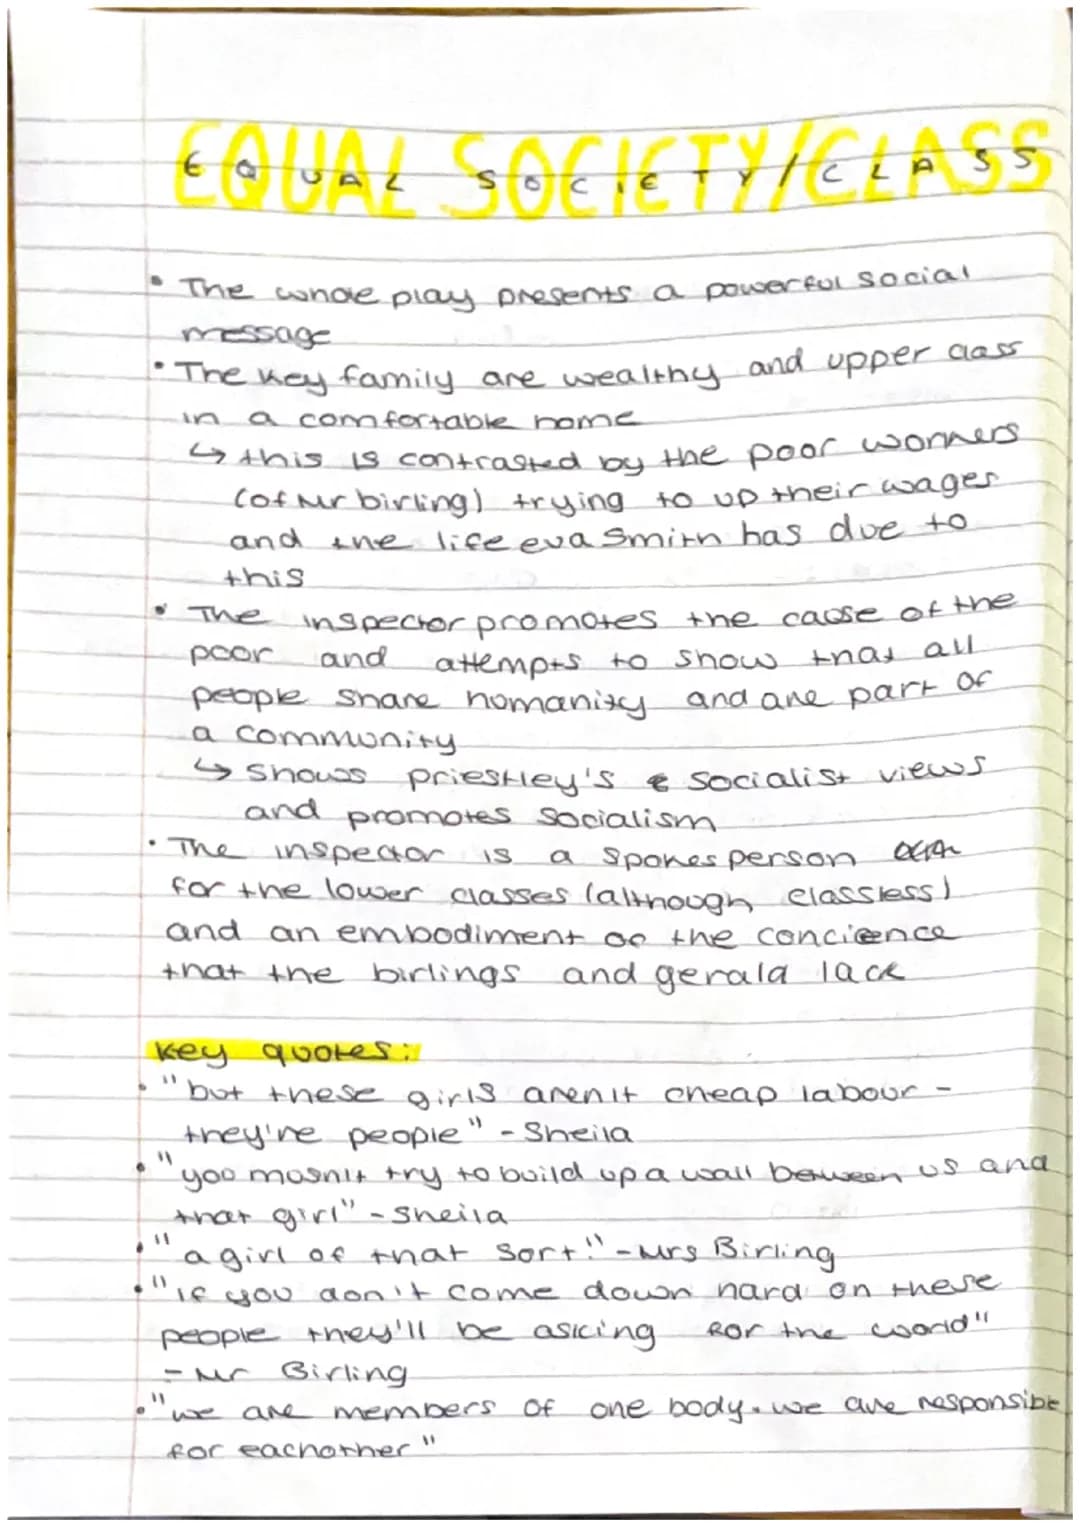 EQUAL SOCIETY/CLASS
• The whole play presents a powerful social
message
• The key family are wealthy and upper class
in a comfortable home
↳ this is contrasted by the poor workers
(of Mr birling) trying to up their wages
and the life eva Smith has due to
this
• The inspector promotes the cause of the
poor and attempts to show that all
people share humanity and are part of
a community
↳ shows priestley's socialist views
and promotes socialism
• The inspector is a spokesperson
for the lower classes (although classless)
and an embodiment of the concience
that the birlings and gerald lack
key quotes:
• "but these girls aren't cheap labour -
they're people" - Sheila
• "you musn't try to build up a wall between us and
that girl" - Sheila
• "a girl of that sort!" - Mrs Birling
• "if you don't come down hard on these
people they'll be asking for the world"
- Mr Birling
• "we are members of one body. we are responsible
for eachother"